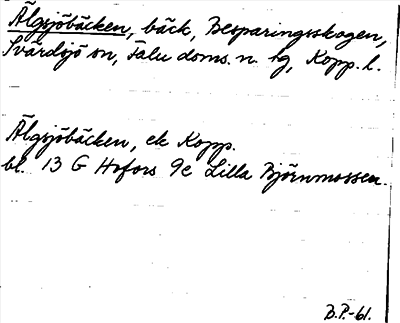 Älgsjöbäcken, bäck, Besparingsskogen,
Svärdsjö sn, Falu doms. n. tg, Kopp. l.
Älgsjöbäcken, ek Kopp.
bl. 13 G Hofors 9e Lilla Björnmossen.
B.P.-61.